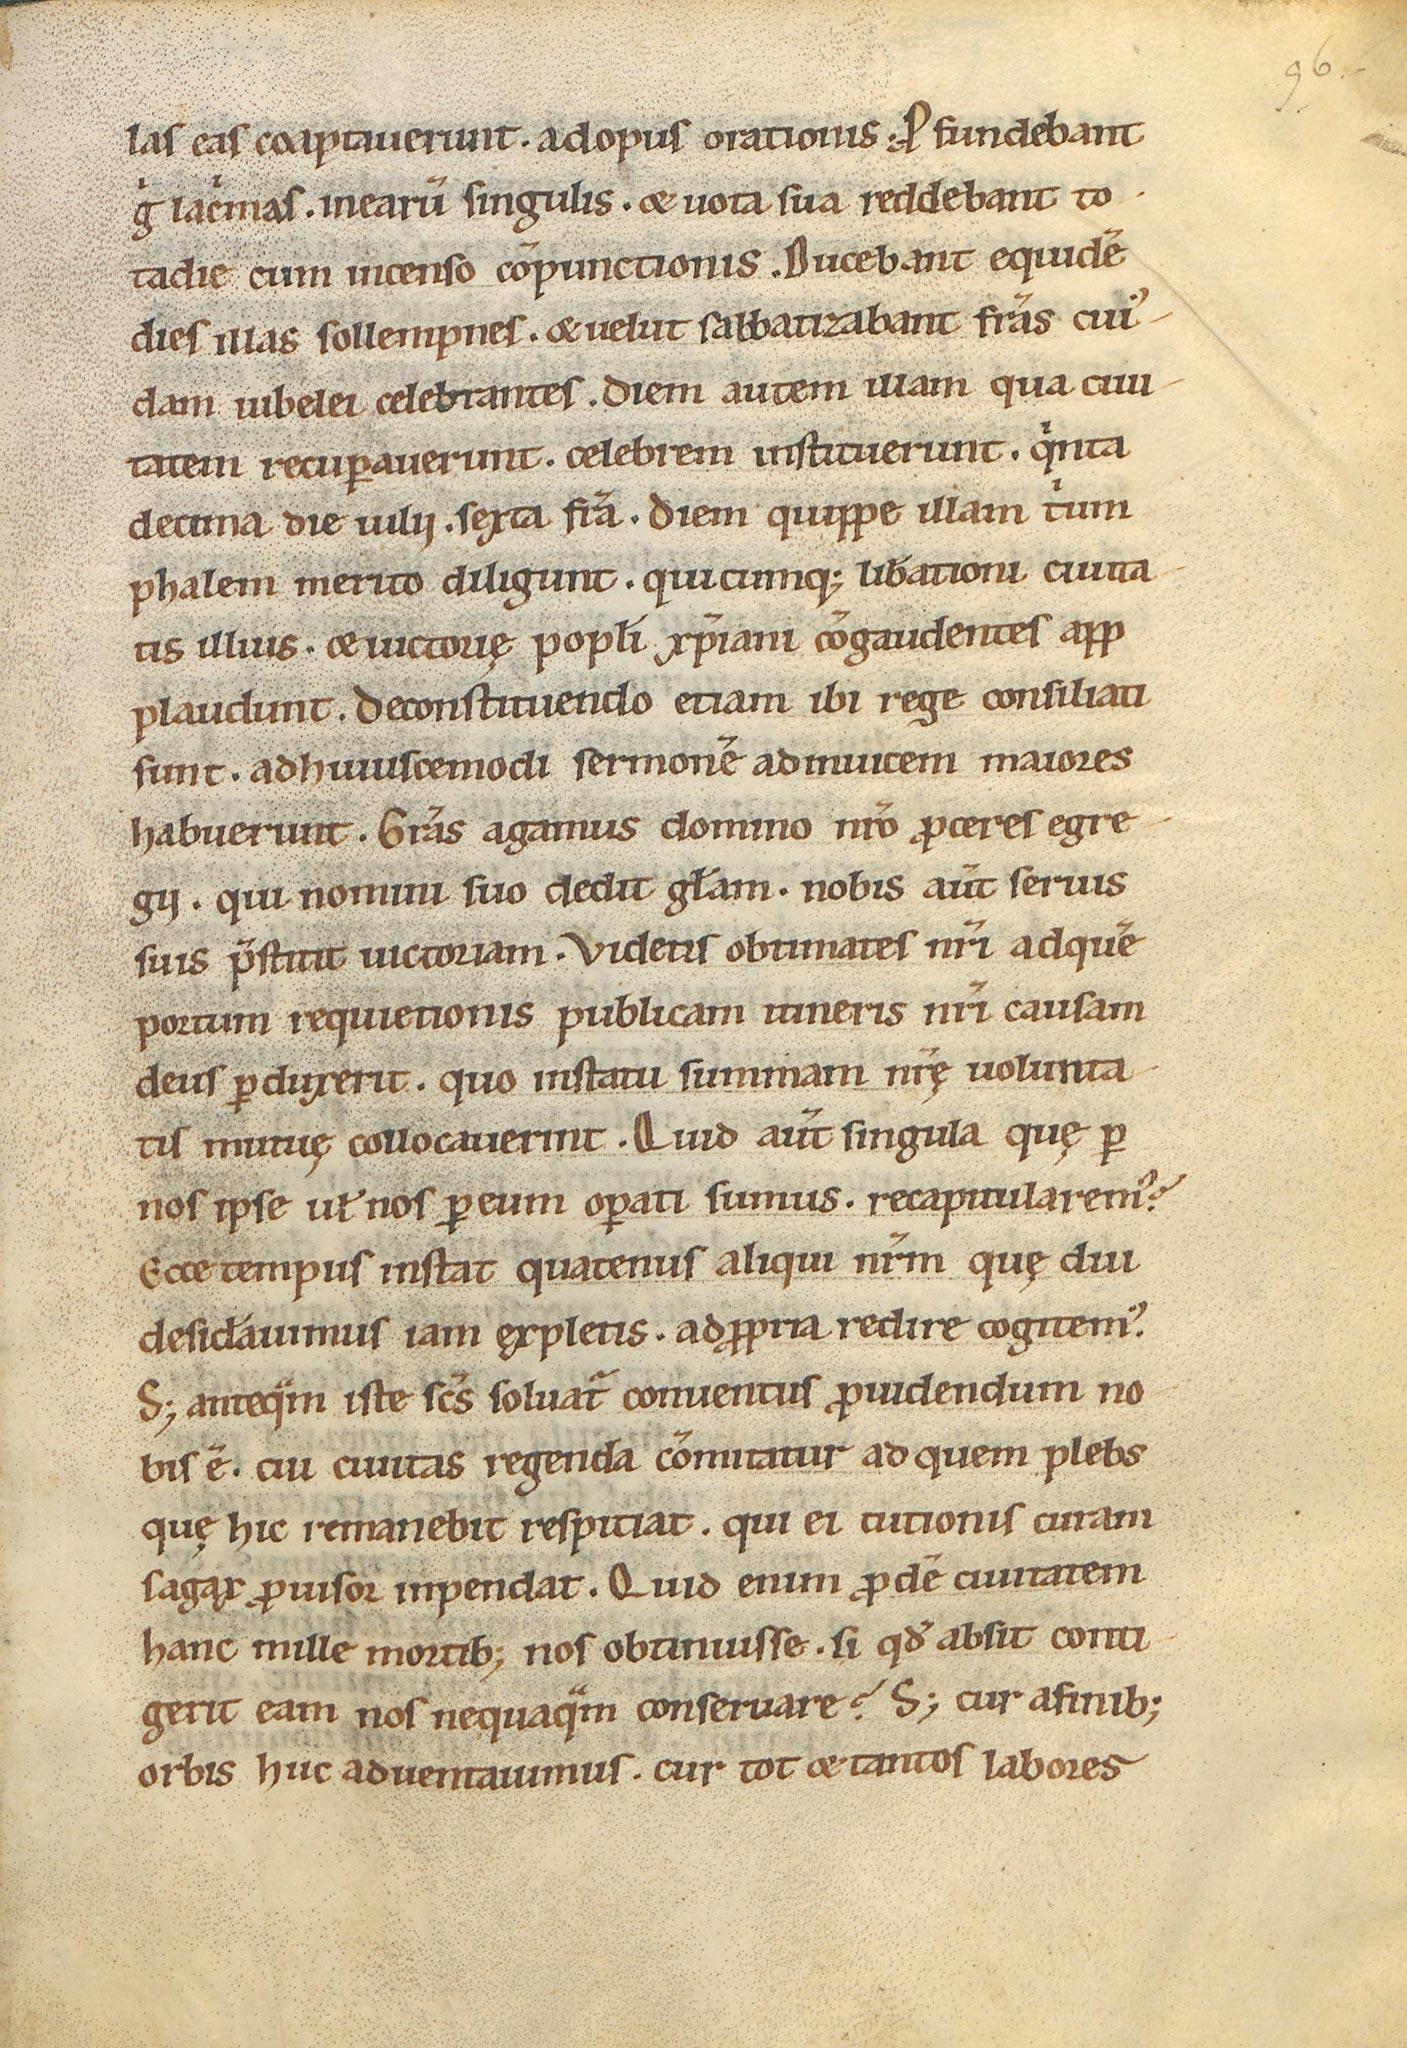 96
las eas coaptauerunt. adopus orationis: Ꝓfundebant
gͥ lacͥmas. inearū singulis. & uota sua reddebant to-
tadie cum incenso cōpunctionis. Ducebant equidē
dies illas sollempnes. & uelut sabbatizabant fr̄as cuiꝰ-
dam iubelei celebrantes. Diem autem illam qua ciui-
tatem recuꝑauerunt. celebrem instituerunt. qͥnta
decima die iulij. sexta fr̄a. Diem quippe illam tͥum
phalem merito diligunt. quicumq; lib̄ationi ciuita-
tis illius. & uictorię popl̄i xp̄iani cōgaudentes app
plaudunt. Deconstituendo etiam ibi rege consiliati
sunt. adhuiuscemodi sermonē adinuicem maiores
habuerunt. Gr̄as agamus domino nr̄o ꝓceres egre-
gij. qui nomini suo dedit gl̄am. nobis aūt seruis
suis p̄stitit uictoriam. Videtis obtimates nr̄i adquē
portum requietionis publicam itineris nr̄i causam
deus ꝑduxerit. quo instatu summam nr̄ę uolunta-
tis mutuę collocauerint. Quid aūt singula quę ꝑ
nos ipse ut̄ nos ꝑeum oꝑati sumus. recapitularemꝰ?
Ecce tempus instat quatenus aliqui nr̄m quę diu
desid̄auimus iam expletis. adꝓpria redire cogitemꝰ.
S; anteqᵃm iste sc̄s soluat̄ conuentus ꝓuidendum no-
bis ē. cui ciuitas regenda cōmitatur ad quem plebs
quę hic remanebit respitiat. qui ei tutionis curam
sagax ꝓuisor inpendat. Quid enim ꝓdē ciuitatem
hanc mille mortib; nos obtinuisse. si qd̄ absit conti-
gerit eam nos nequaqᵃm conseruare? S; cur afinib;
orbis huc aduentauimus. cur tot & tantos labores